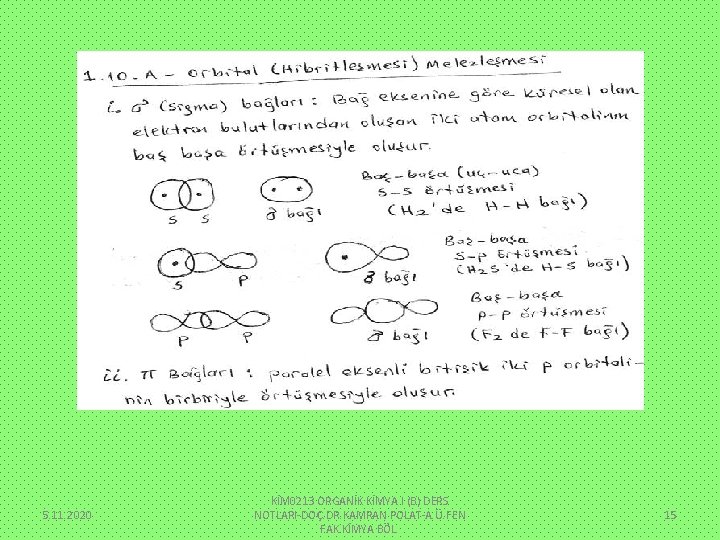 1.10. A - Orbital (Hibritleşmesi) Melezleşmesi
i. σ (Sigma) bağları : Bağ eksenine göre küresel olan
elektron bulutlarından oluşan iki atom orbitalinin
baş başa örtüşmesiyle oluşur.
Baş-başa (uç-uca)
S-S örtüşmesi
(H2'de H-H bağı)
S S
σ bağı
Baş-başa
S-p örtüşmesi
(H2S'de H-S bağı)
S P
σ bağı
Baş-başa
p-p örtüşmesi
(F2 de F-F bağı)
P P
σ bağı
ii. π Bağları : paralel eksenli bitişik iki p orbitali-
nin birbiriyle örtüşmesiyle oluşur.
5.11.2020
KİM0213 ORGANİK KİMYA I (B) DERS
NOTLARI-DOÇ.DR.KAMRAN POLAT-A.Ü.FEN
FAK.KİMYA BÖL
15